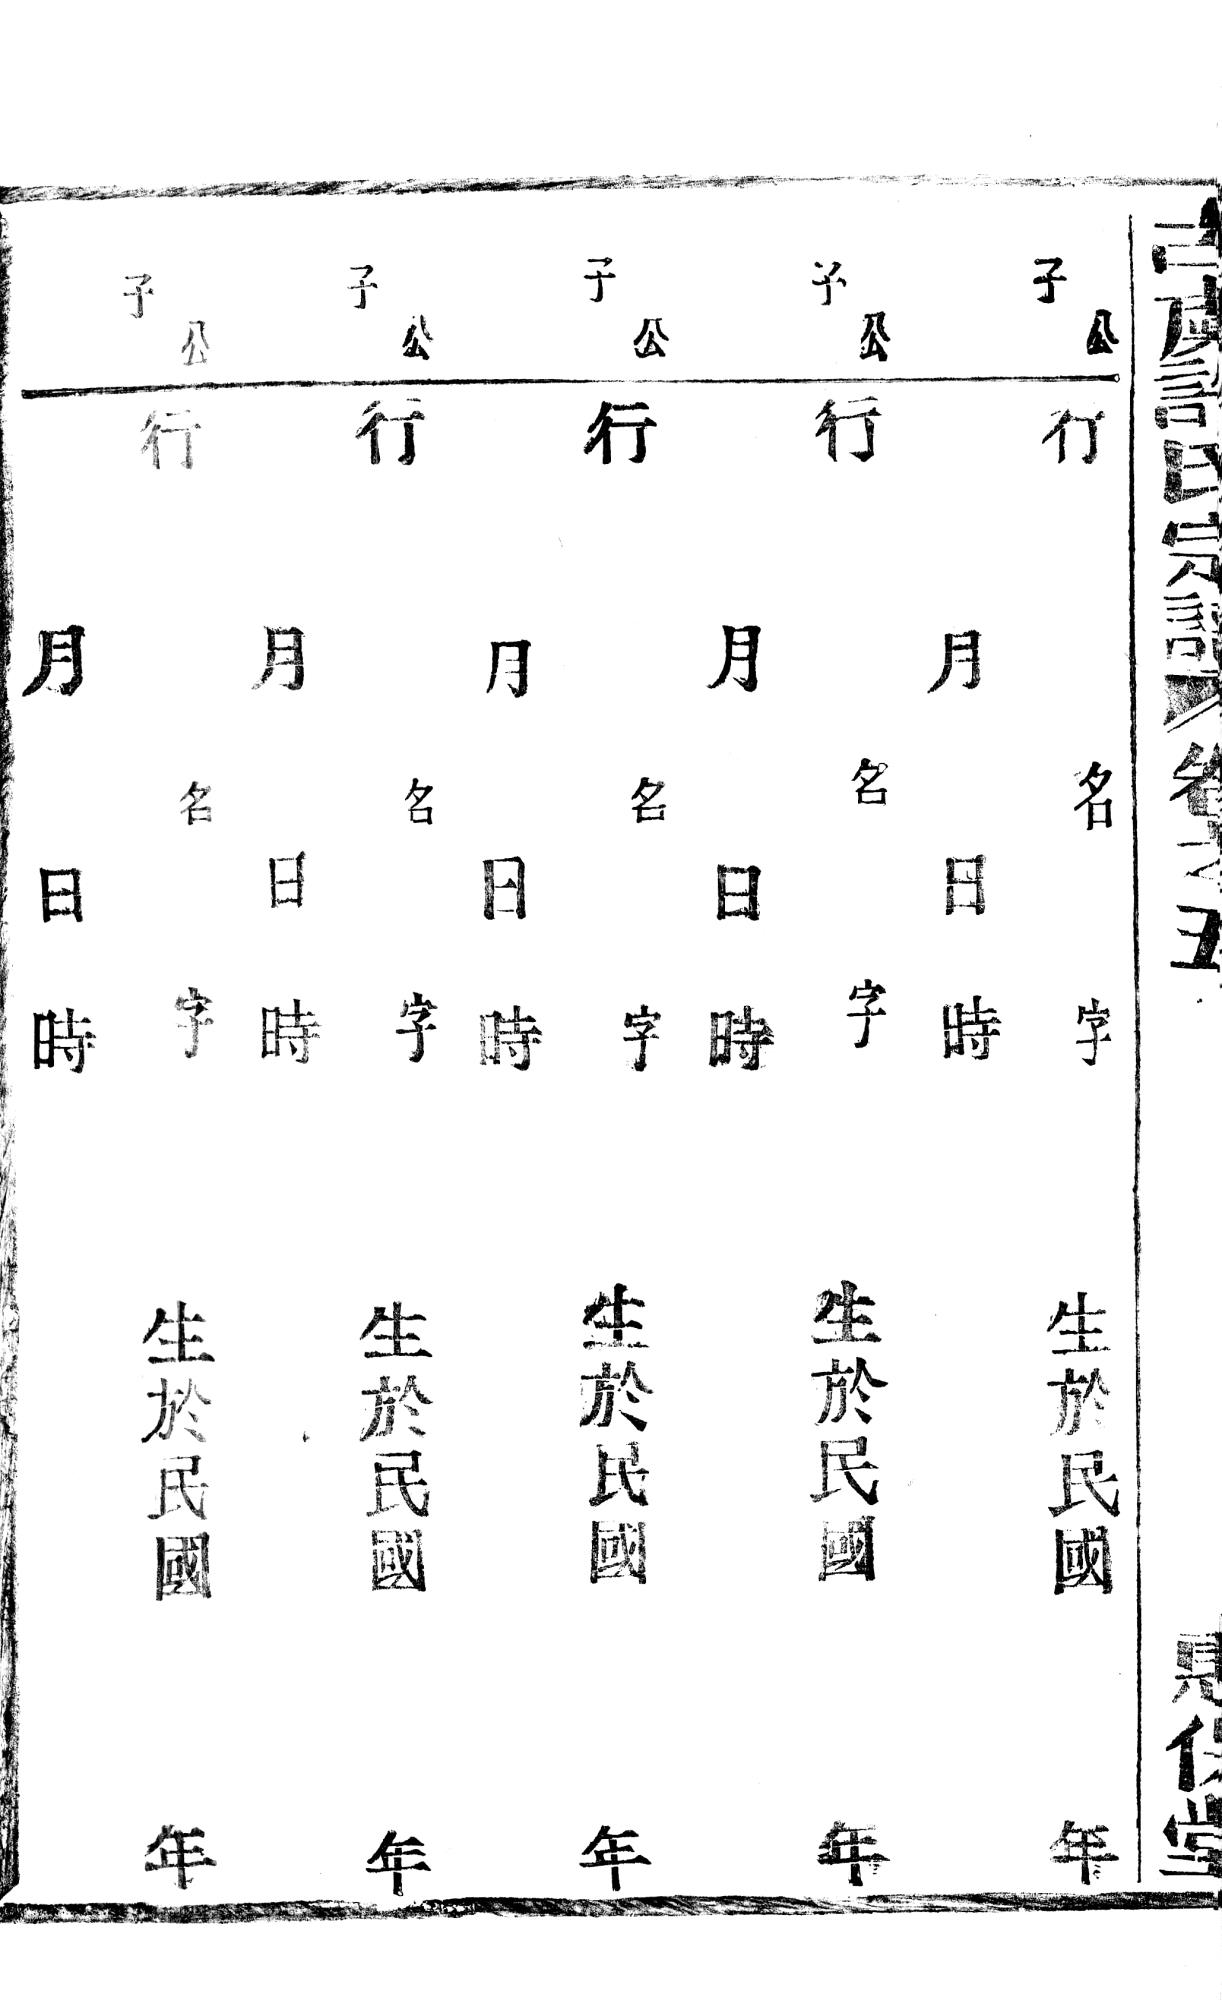 古虞許氏宗譜 卷 五 堂
公
子
行 名 字 生於民國 年
月 日 時
公
子
行 名 字 生於民國 年
月 日 時
公
子
行 名 字 生於民國 年
月 日 時
公
子
行 名 字 生於民國 年
月 日 時
公
子
行 名 字 生於民國 年
月 日 時